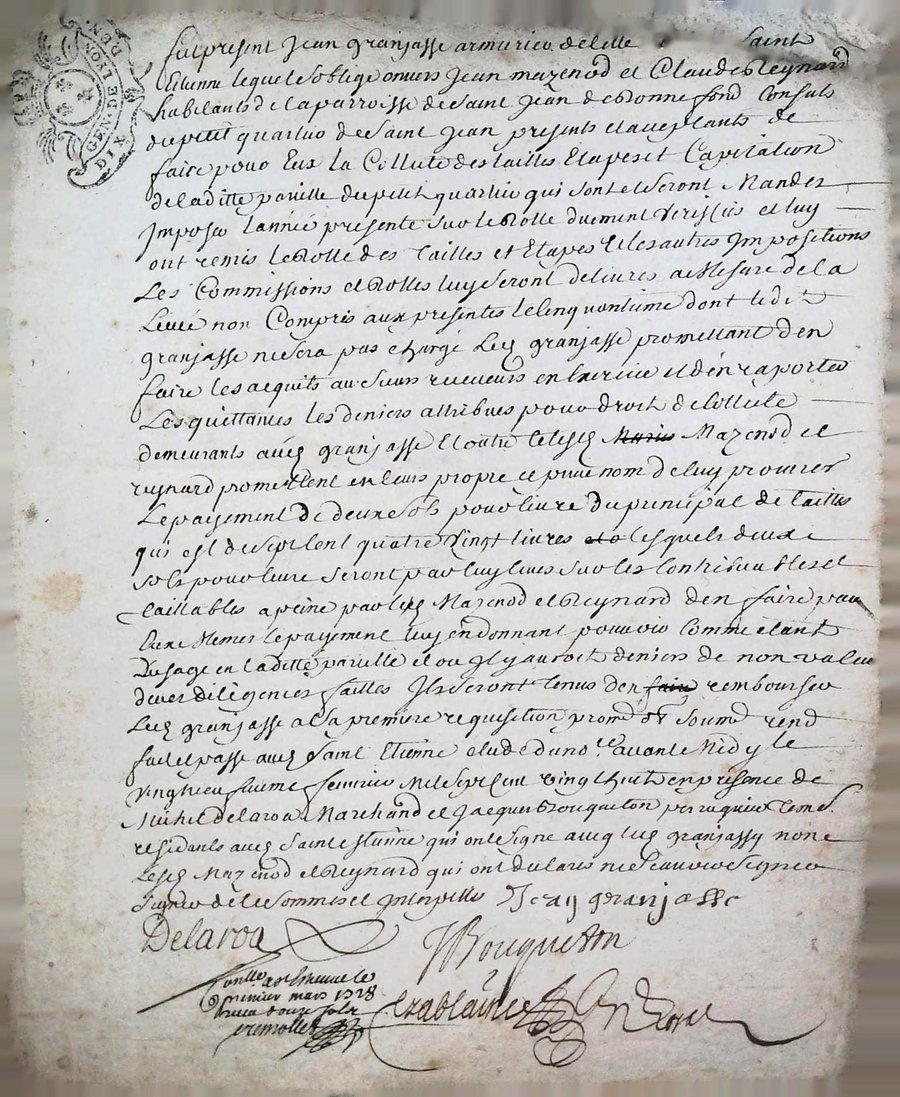 GEN. DE LYON
DIX DEN
fut present Jean granjasse armurier de cette Saint
Etienne lequel s oblige envers Jean mazenod et Claude Reynard
habitants de la parroisse de Saint Jean de Bonnefond Consuls
du petit quartier de Saint Jean presents et aceptants de
faire pour Eux la Collute des tailles Etapes et Capitation
de laditte parcille du petit quartier qui sont et seront Mandez
Imposer l année presente sur le Rolle duement veriffiés et luy
ont remis le Rolle des Tailles et Etapes et les autres Impositions
Les Commissions et Rolles luy seront delivrés a Mesure de la
Levée non Compris aux presentes le cinquantieme dont le dit
granjasse ne sera pas chargé Led granjasse promettant d en
faire les acquits au Sieurs receveurs en Exercice et d en raporter
Les quittances les deniers attribues pour droit de Collute
demeurants aud granjasse Et outre ce lesd Mazenod et
reynard promettent en leurs propre et privé nom de luy procurer
Le payement de deux sols pour livre du principal de tailles
qui est de sept Cent quatre Vingt livres lesquels deux
sols pour livre seront par luy livés sur les Contribuables et
taillables a peine par lesd Mazenod et Reynard d en faire par
Eux Memes le payement luy en donnant pouvoir Comme etant
D usage en laditte parcille et ou Il y auroit deniers de non valeur
deues deligences faittes Ils seront tenus d en faire rembourser
Led granjasse a la premiere requisition prom obl soumd rend
fait et passé aud Saint Etienne etude du no.re avant Midy le
vingt neuvieme fevrier Mil sept Cent vingt huit en presence de
Michel Delaroa Marchand et Jacques Bouqueton perruquier temoins
residants aud Saint etienne qui ont signé avec led granjasse non
Lesd Mazenod et Reynard qui ont declarés ne scavoir signer
de ce Sommes et Interpellés Jean granjasse
Delaroa JBouqueton
Conllé a St Etienne le
premier mars 1728
Receu douze sols